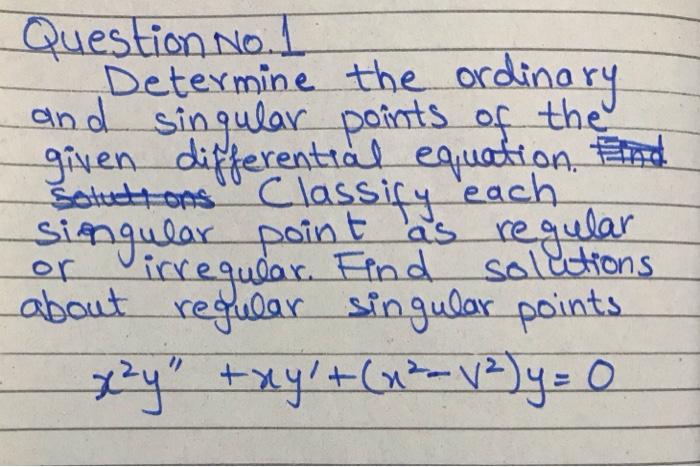 Question No. 1
Determine the ordinary
and singular points of the
given differential equation. Find
Solutions Classify each
singular point as regular
or irregular. Find solutions
about regular singular points
x²y'' + xy' + (x² - v²)y = 0